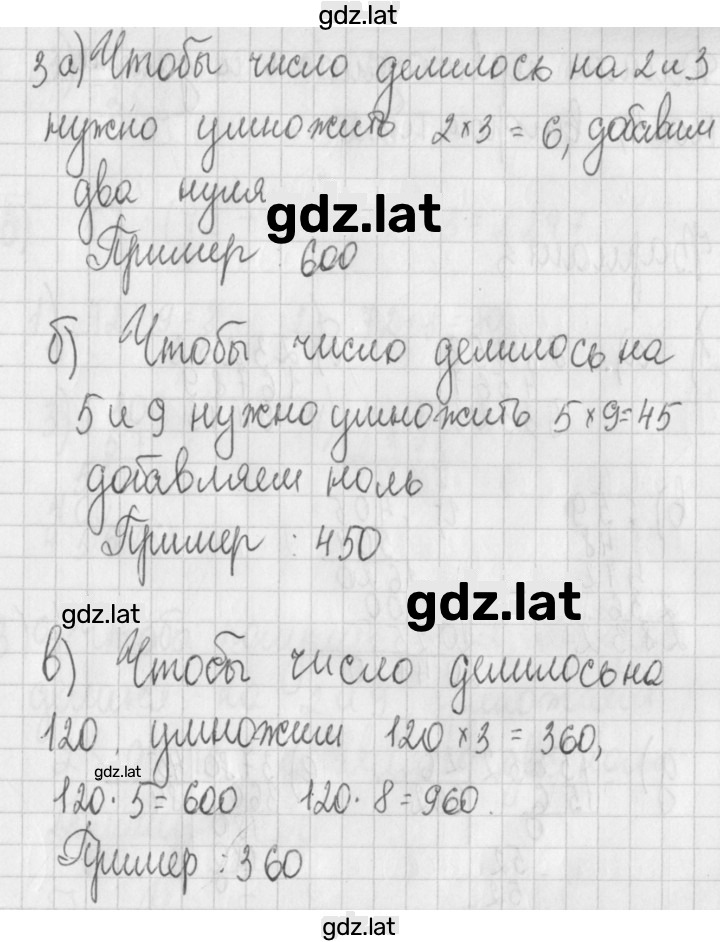 gdz.lat
3 а) Чтобы число делилось на 2 и 3
нужно умножить 2 × 3 = 6, добавим
два нуля
gdz.lat
Пример : 600
б) Чтобы число делилось на
5 и 9 нужно умножить 5 × 9 = 45
добавляем ноль
Пример : 450
gdz.lat
gdz.lat
в) Чтобы число делилось на
120, умножим 120 × 3 = 360,
gdz.lat
120 · 5 = 600 120 · 8 = 960.
Пример : 360
gdz.lat